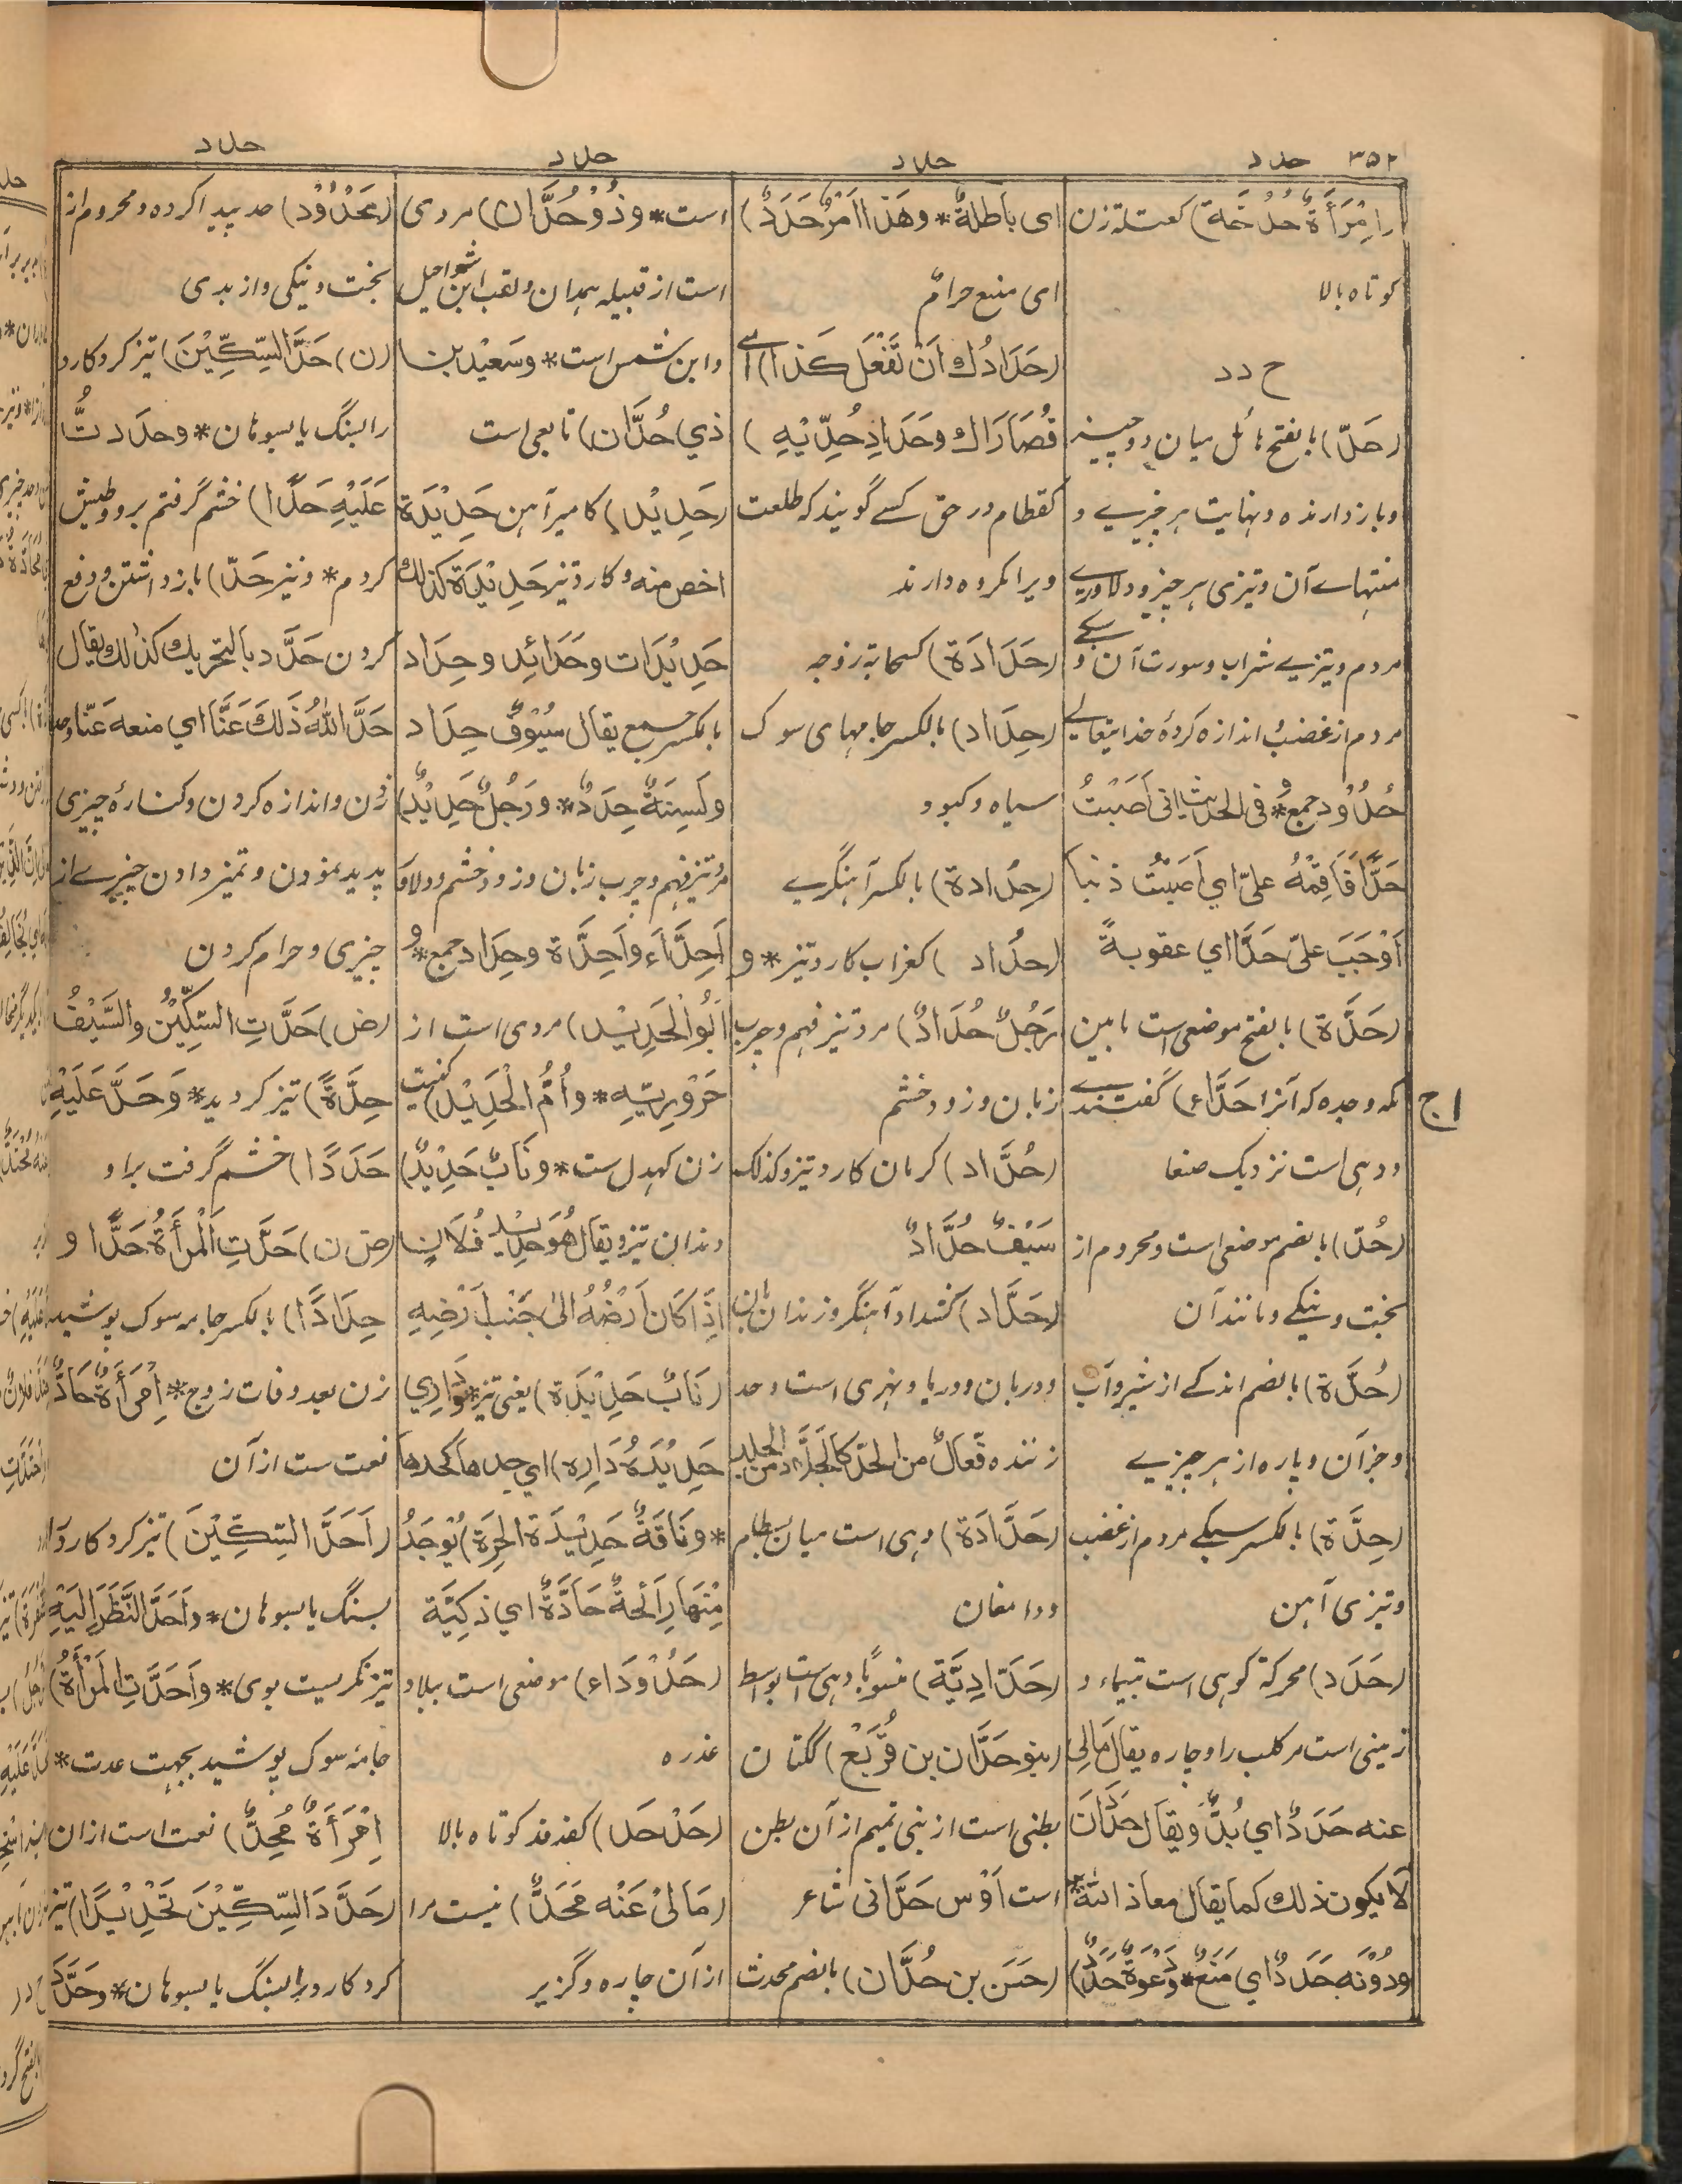 ۳۵۲ حدد
حدد
حدد
حدد
(اِمْرَأَةٌ حُدُخَّة) کعتلة زن
کوتاه بالا
ح د د
(حَدّ) بالفتح حائل میان دو چیز
و بازدارنده و نهایت هر چیزے و
منتهاے آن و تیزی هر چیز و دلاورے
مردم و تیزیے شراب و سورت آن و سبکے
مردم از غضب و اندازه کردهٔ خدایتعالے
حُدُوْد جمع * و فی الحدیث انی اَصَبْتُ
حَدًّا فَاَقِمْهُ علیّ اي اَصَبْتُ ذنبا
اَوْجَبَ علیّ حَدًّا اي عقوبةً
(حَدَّة) بالفتح موضعی است مابین
مکه و جده که آنرا حَدَّاء) گفتندے
و دہی است نزدیک صنعا
(حُدّ) بالضم موضعی است و محروم از
بخت و نیکے و مانند آن
(حُدَّة) بالضم اندکے از شیر و آب
و جز آن و پاره از هر چیزیے
(حِدَّة) بالکسر سبکے مردم از غضب
و تیزی آهن
(حَدَد) محرکة کوهی است بتیماء و
زمینی است مر کلب را و چاره یقال مَالِی
عنه حَدَدٌ اي بُدٌّ و یقال حَدَدًا اَنْ
لا یکون ذلك کما یقال معاذ اللّٰه *
و دُوْنَه حَدَدٌ اي مَنَعٌ * وَ دَعْوَةٌ حَدَدٌ)
ای باطلةٌ * وهَذا اَمْرٌ حَدَدٌ)
ای منیع حرامٌ
(حَدَادُكَ اَنْ تَفْعَلَ كَذا) اے
قُصَارَاك وحَدَادِ حُدِّیْهِ)
کقطام در حق کسے گویند که طلعت
ویرا مکروه دارند
(حَدَادَة) کسحابة زوجه
(حِدَاد) بالکسر جامهای سوک
سیاه و کبود
(حِدَادة) بالکسر آهنگریے
(حُدَاد) کغراب کارد تیز * و
رَجُلٌ حُدَادٌ) مرد تیز فهم و چرب
زبان و زود خشم
(حُدَّاد) کرمان کارد تیز و کذلك
سَیْفٌ حُدَّادٌ
(حَدَّاد) کشداد آهنگر و زندان بان
و دربان و دریا و نهری است و حد
زننده فَعّالٌ من الحَدّ کالجَلّاد من الجلد
(حَدَّادَة) دہی است میان بسطام
و دامغان
(حَدّادِیَّة) منسوبًا دہی است بواسط
(بنو حَدَّان بن قُرَیْع) ککتان
بطنی است از بنی تمیم از آن بطن
است اَوْس حَدَّانی شاعر
(حَسَن بن حُدَّان) بالضم محدث
است * و ذُوْ حُدَّان) مردی
است از قبیله همدان و لقب ابن شراحیل
و ابن شمس است * و سَعِیْد بن
ذي حُدَّان) تابعی است
(حَدِیْد) کامیر آهن حَدِیْدَة
اخص منه و کارد تیز حَدِیْدَة کذلك
حَدِیْدَات و حَدَائِد و حِدَاد
بالکسر جمع یقال سُیُوْفٌ حِدَاد
و اَلْسِنَةٌ حِدَادٌ * و رَجُلٌ حَدِیْدٌ)
مرد تیز فهم و چرب زبان و زود خشم و دلاور
اَحِدَّاء و اَحِدَّة و حِدَاد جمع * و
اَبُو الْحَدِیْد) مردی است از
حَرُوْرِیّه * و اُمُّ الْحَدِیْد) کنیت
زن کهدل ست * و نَابٌ حَدِیْدٌ)
دندان تیز و یقال هُوَ حَدِیْدُ فُلَانٍ
اِذَا كَانَ اَرْضُهُ الیٰ جَنْبِ اَرْضِهِ
(نَابٌ حَدِیْدَة) یعنی تیز * و دَارِي
حَدِیْدَةُ دَارِه) اي حدها کحدها
* و نَاقَةٌ حَدِیْدَة الجِرَة) یُوْجَدُ
مِنْهَا رَائحةٌ حَادَّةٌ اي ذکِیَّة
(حَدُوْدَاء) موضعی است ببلاد
عذره
(حَدْحَد) کفدفد کوتاه بالا
(مَا لِیْ عَنْه مَحَدٌّ) نیست مرا
از آن چاره و گزیر
(مَحْدُوْد) حد پیدا کرده و محروم از
بخت و نیکی و از بدی
(ن) حَدَّ السِّکِّیْنَ) تیز کرد کارد
را بسنگ یا بسوهان * و حَدَدتُّ
عَلَیْهِ حَدًّا) خشم گرفتم برو و طیش
کردم * و نیز حَدّ) بازداشتن و دفع
کردن حَدَد بالتحریك کذلك یقال
حَدَّ اللّٰهُ ذَلكَ عَنَّا اي منعه عَنّا و حد
زدن و اندازه کردن و کنارهٔ چیزی
پدید نمودن و تمیز دادن چیزے از
چیزی و حرام کردن
(ض) حَدَّتِ السِّکِّیْنُ و السَّیْفُ
حِدَّةً) تیز گردید * وَ حَدَّ عَلَیْهِ
حَدَدًا) خشم گرفت براو
(ض ن) حَدَّتِ الْمَرْأَةُ حَدًّا و
حِدَادًا) بالکسر جامه سوک پوشید
زن بعد وفات زوج * اِمْرَأَةٌ حَادٌّ
نعت ست از آن
(اَحَدَّ السِّکِّیْنَ) تیز کرد کارد را
بسنگ یا بسوهان * و اَحَدَّ النَّظَرَ اِلَیْهِ)
تیز نگریست بوی * وَ اَحَدَّتِ الْمَرْأَةُ)
جامهٔ سوک پوشید بجهت عدت *
اِمْرَأَةٌ مُحِدٌّ) نعت است ازان
(حَدَّدَ السِّکِّیْنَ تَحْدِیْدًا) تیز
کرد کارد را بسنگ یا بسوهان * و حَدَّدَ
ا ج